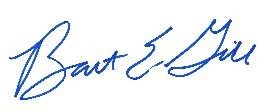 Bart E. Gill